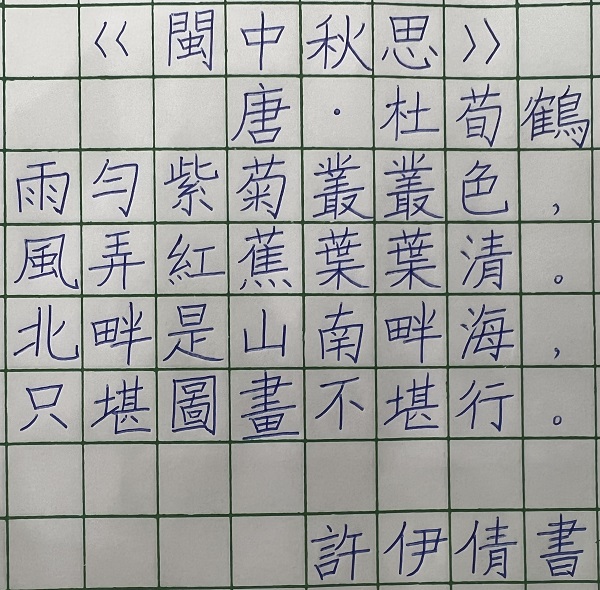 《閩中秋思》
唐·杜荀鶴
雨勻紫菊叢叢色,
風弄紅蕉葉葉清。
北畔是山南畔海,
只堪圖畫不堪行。
許伊倩書